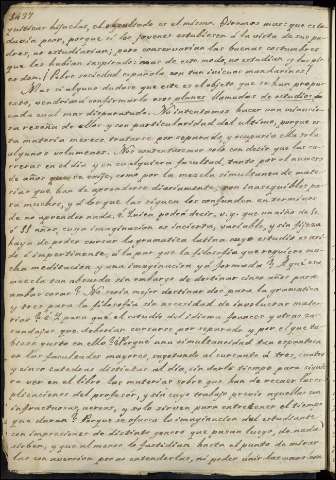 1437
el resultado es el mismo. Diremos mas: que este
daria peor, porque si los jovenes estubiesen á la vista de sus pa-
dres, no estudiarian; pero conservarian las buenas costumbres
que les habian inspirado: mas de este modo, no estudian y las pier-
den. ¡Pobre sociedad española con tan inicuos
Mas si alguno dudase que este es el objeto que se han propu-
esto, vendriamos á confirmarlo esos planes llamados de estudios, á
cada cual mas disparatado. No intentamos hacer una minucio-
sa reseña de ellos y con particularidad del ultimo, porque es-
ta materia merece tratarse por separado, y ocuparia ella sola
algunos volumenes. Nos contentaremos solo con decir que las ca-
rreras en el dia y en cualquiera facultad, tanto por el numero
de años que se exije, como por la mezcla simultanea de mate-
rias que han de aprenderse diariamente, son inasequibles pa-
ra muchos, y á los que las siguen los confunden en terminos
de no aprender nada. ¿Quien podrá decir, v. g. que un niño de 10
ó 11 años, cuya imaginacion es incierta, variable, y sin fijeza
haya de poder cursar la gramatica latina cuyo estudio es ari-
do é impertinente, á la par que la filosofia que requiere mu-
cha meditacion y una imaginacion ya formada? ¿A qué esa
mezcla tan absurda sin embargo de destinar cinco años para
ambas cosas? ¿No seria mejor destinar dos para la gramatica
y tres para la filosofia sin necesidad de involucrar mate-
rias? ¿Y para qué el estudio del idioma frances y otras za-
randajas que deberian cursarse por separado y por el que tu-
biese gusto en ello? ¿Porqué una simultaneidad tan espantosa
en las facultades mayores, sugetando al cursante á tres, cuatro
y cinco catedras distintas al dia, sin darle tiempo para siquie-
ra ver en el libro las materias sobre que han de recaer las es-
plicaciones del profesor, y sin cuyo trabajo previo aquellas son
infructuosas, aereas, y solo sirven para entretener el tiempo
que duran? ¿Porque se ofusca la imaginacion del estudiante
con impresiones de distinto genero que pasan luego, de nada
sirven, y que al menos le fastidian hasta el punto de mirar-
las con aversion por no entenderlas, ni poder unir las unas con